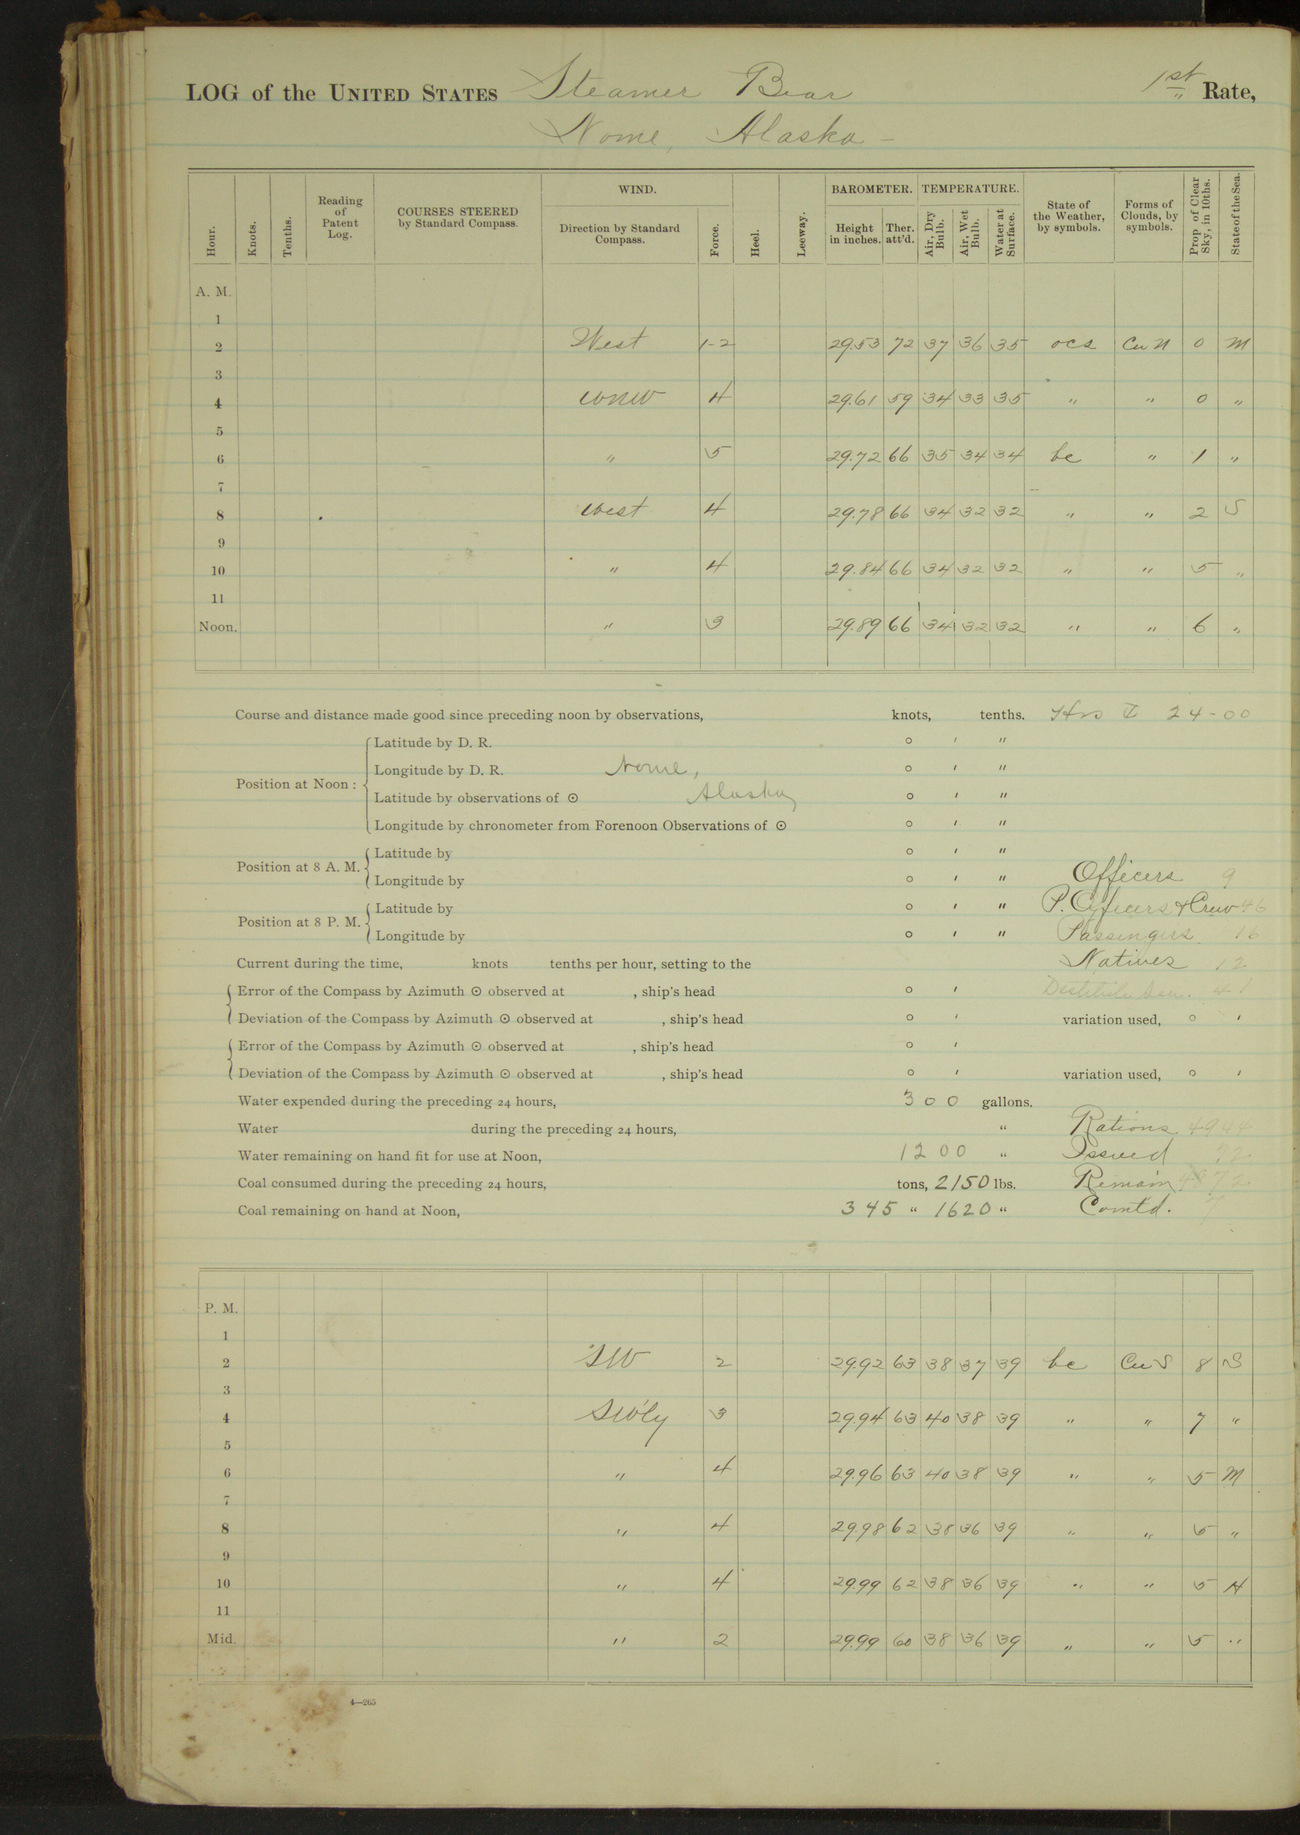 LOG of the UNITED STATES Steamer Bear 1st Rate,
Nome, Alaska -
Hour. Knots. Tenths. Reading of Patent Log. COURSES STEERED by Standard Compass. WIND. Direction by Standard Compass. Force. Heel. Leeway. BAROMETER. Height in inches. Ther. att'd. TEMPERATURE. Air, Dry Bulb. Air, Wet Bulb. Water at Surface. State of the Weather, by symbols. Forms of Clouds, by symbols. Prop. of Clear Sky, in 10ths. State of the Sea.
A. M.
1
2 West 1-2 29.53 72 37 36 35 ocs Cu N 0 M
3
4 WNW 4 29.61 59 34 33 35 " " 0 "
5
6 " 5 29.72 66 35 34 34 bc " 1 "
7
8 West 4 29.78 66 34 32 32 " " 2 S
9
10 " 4 29.84 66 34 32 32 " " 5 "
11
Noon. " 3 29.89 66 34 32 32 " " 6 "
Course and distance made good since preceding noon by observations, knots, tenths. 24-00
Latitude by D. R. ° ′ ″
Position at Noon : Longitude by D. R. Nome, ° ′ ″
Latitude by observations of ☉ Alaska, ° ′ ″
Longitude by chronometer from Forenoon Observations of ☉ ° ′ ″
Position at 8 A. M. Latitude by ° ′ ″
Longitude by ° ′ ″ Officers 9
Position at 8 P. M. Latitude by ° ′ ″ P. Officers & Crew 46
Longitude by ° ′ ″ Passengers 16
Current during the time, knots tenths per hour, setting to the Natives 12
Error of the Compass by Azimuth ☉ observed at , ship's head ° ′ 41
Deviation of the Compass by Azimuth ☉ observed at , ship's head ° ′ variation used, ° ′
Error of the Compass by Azimuth ☉ observed at , ship's head ° ′
Deviation of the Compass by Azimuth ☉ observed at , ship's head ° ′ variation used, ° ′
Water expended during the preceding 24 hours, 300 gallons.
Water during the preceding 24 hours, " Rations 4944
Water remaining on hand fit for use at Noon, 1200 " Issued 72
Coal consumed during the preceding 24 hours, tons, 2150 lbs. Remain
Coal remaining on hand at Noon, 345 " 1620 " Comtd.
P. M.
1
2 SW 2 29.92 63 38 37 39 bc Cu S 8 S
3
4 SWly 3 29.94 63 40 38 39 " " 7 "
5
6 " 4 29.96 63 40 38 39 " " 5 M
7
8 " 4 29.98 62 38 36 39 " " 5 "
9
10 " 4 29.99 62 38 36 39 " " 5 H
11
Mid. " 2 29.99 60 38 36 39 " " 5 "
4—265